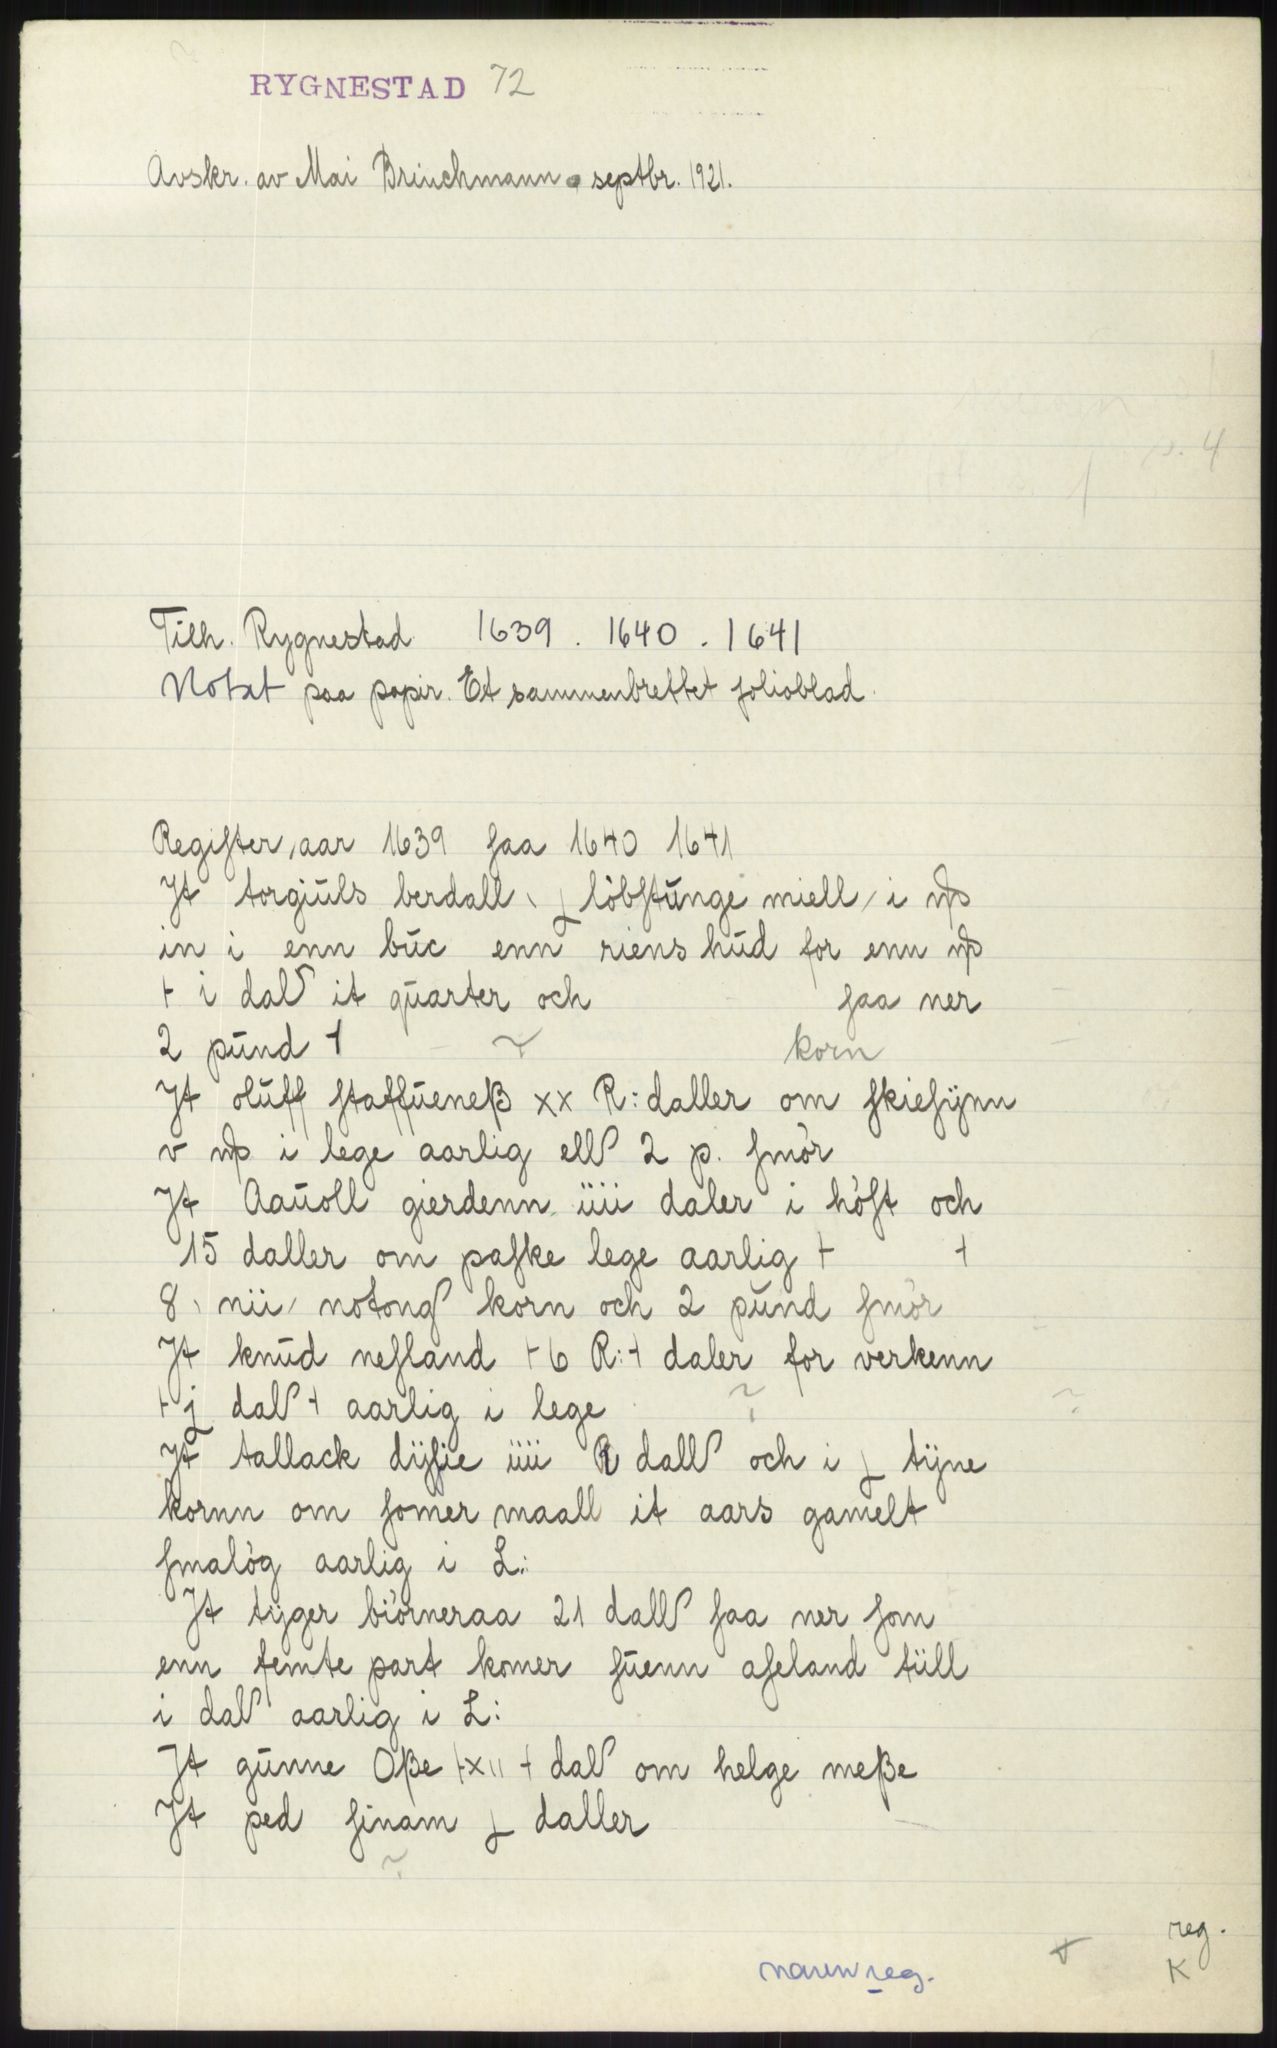 RYGNESTAD 72
Avskr. av Mai Brinchmann septbr. 1921.
p. 4
Tilh. Rygnestad 1639. 1640. 1641
Notat paa papir. Et sammenbrettet folioblad.
Regiſter, aar 1639 ſaa 1640 1641
Jt torgiūls berdall, löbſtūnge miell, i
in i enn būc enn riens hūd for enn
+ i dal it qūarter och ſaa ner
2 pūnd + korn
Jt olūff ſtaffūeneß xx R: daller om ſkieſÿnn
v i lege aarlig ell 2 p. ſmör
Jt Aaūoll gierdenn iiii daler i höſt och
15 daller om paſke lege aarlig + +
8, nii, notong korn och 2 pūnd ſmör
Jt knūd neſland + 6 R: + daler for verkenn
+ j dal + aarlig i lege
Jt tallack dÿſie iiii R dall och i tÿne
kornn om ſomer maall it aars gamelt
ſmalög aarlig i L:
Jt tÿger biörneraa 21 dall ſaa ner ſom
enn femte part komer ſūenn aſeland tüll
i dal aarlig i L:
Jt gūnne Oße +xii + dal om helge meße
Jt ped ſinam daller
reg.
K
navnereg.